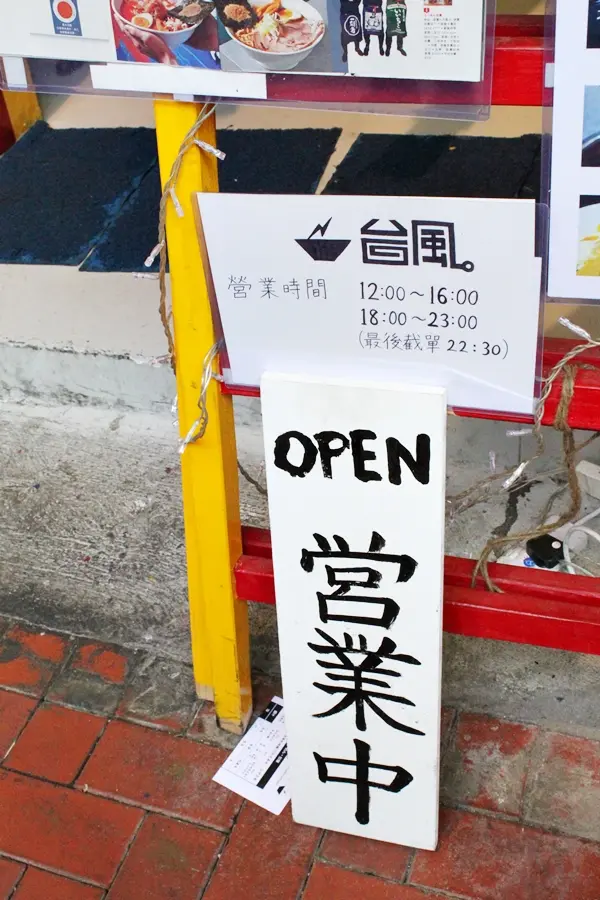 台風
營業時間 12:00～16:00
18:00～23:00
(最後截單 22:30)
OPEN
営業中